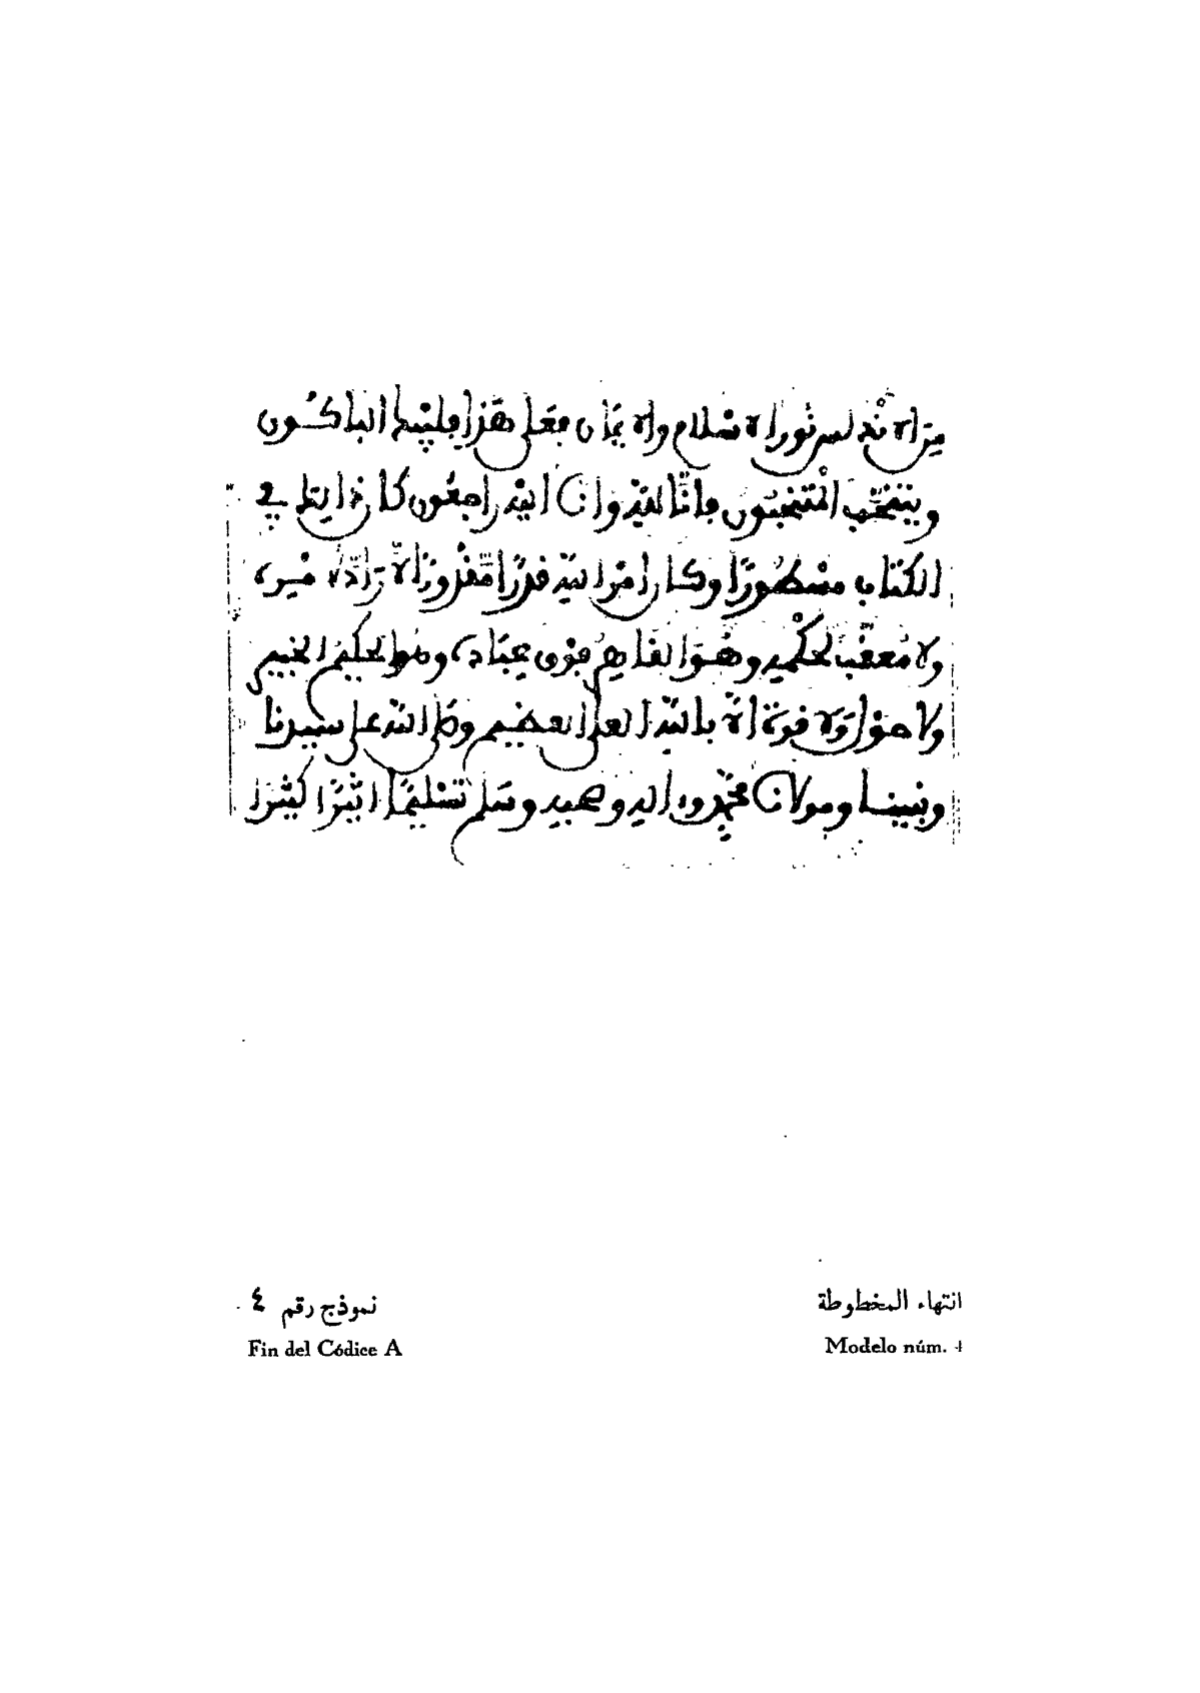 من الاندلس نور الاسلام والايمان فعلى هذا فليبك الباكون
وينتحب المنتحبون فانا لله وانا اليه راجعون كان ذلك في
الكتاب مسطورا وكان امر الله قدرا مقدورا لا راد لامره
ولا معقب لحكمه وهو القاهر فوق عباده وهو الحكيم الخبير
ولا حول ولا قوة الا بالله العلي العظيم وصلى الله على سيدنا
ونبينا ومولانا محمد وءاله وصحبه وسلم تسليما اثيرا كثيرا
انتهاء المخطوطة
نموذج رقم ٤
Fin del Códice A
Modelo núm. 4